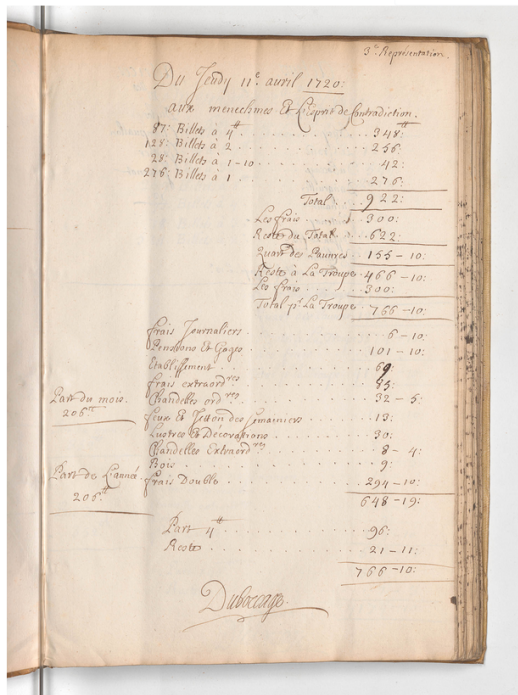 3.e Representation.
Du Jeudy 11.e avril 1720:
aux menechmes Et L'Esprit de Contradiction.
87: Billets à 4tt . . . . 348:tt
128: Billets à 2 . . . . 256:
28: Billets à 1-10 . . . . 42:
276: Billets à 1 . . . . 276:
Total . . 922:
Les frais . . . . 300:
Reste du Total . . . 622:
Quart des Pauvres . 155-10:
Reste à La Troupe . 466-10:
Les frais . . . . 300:
Total pr La Troupe . 766-10:
frais Journaliers . . . . 6-10:
Pensions Et Gages . . . . 101-10:
Etablissement . . . . 69:
frais extraordres . . . . 85:
Chandelles ordres . . . . 32-5:
Part du mois.
206tt
feux Et Jetton des Semainiers . . . 13:
Lustres Et Décorations . . . . 30:
Chandelles Extraordres . . . . 8-4:
Bois . . . . 9:
Part de L'année.
206tt
frais Double . . . . 294-10:
648-19:
Part 4tt . . . . 96:
Reste . . . . 21-11:
766-10:
Duboccage.